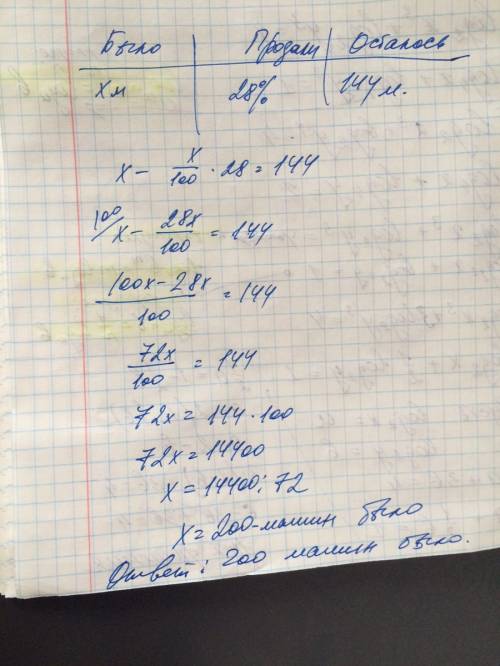 Было Продали Осталось
х м 28% 144 м.
х - х/100 · 28 = 144
100/х - 28х/100 = 144
100х - 28х/100 = 144
72х/100 = 144
72х = 144 · 100
72х = 14400
х = 14400 : 72
х = 200 - машин было
Ответ: 200 машин было.